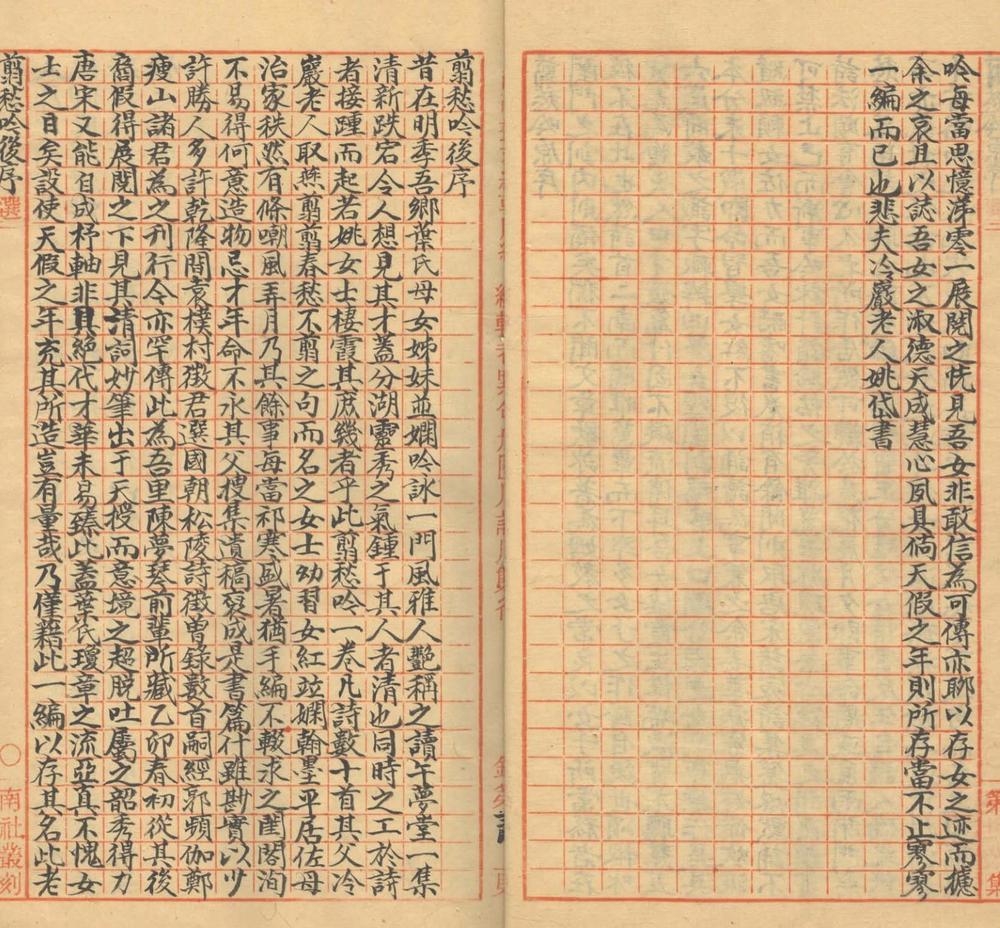 吟每當思憶涕零一展閱之怳見吾女非敢信為可傳亦聊以存女之迹而攄
余之哀且以誌吾女之淑德天成慧心夙具倘天假之年則所存當不止寥寥
一編而已也悲夫冷巖老人姚岱書
翦愁吟後序
昔在明季吾鄉葉氏母女姊妹並嫻吟詠一門風雅人艷稱之讀午夢堂一集
清新跌宕令人想見其才蓋分湖靈秀之氣鍾于其人者清也同時之工於詩
者接踵而起若姚女士棲霞其庶幾者乎此翦愁吟一卷凡詩數十首其父冷
巖老人取燕翦翦春愁不翦之句而名之女士幼習女紅竝嫻翰墨平居佐母
治家秩然有條嘲風弄月乃其餘事每當祁寒盛暑猶手編不輟求之閨閤洵
不易得何意造物忌才年命不永其父搜集遺稿裒成是書篇什雖尠實以少
許勝人多許乾隆間袁樸村徵君選國朝松陵詩徵曾錄數首嗣經郭頻伽鄭
瘦山諸君為之刊行今亦罕傳此為吾里陳夢琴前輩所藏乙卯春初從其後
裔假得展閱之下見其清詞妙筆出于天授而意境之超脱吐屬之韶秀得力
唐宋又能自成杼軸非具絕代才華未易臻此蓋葉氏瓊章之流亞真不愧女
士之目矣設使天假之年充其所造豈有量哉乃僅藉此一編以存其名此老
翦愁吟後序
選
南社叢刻
第
集